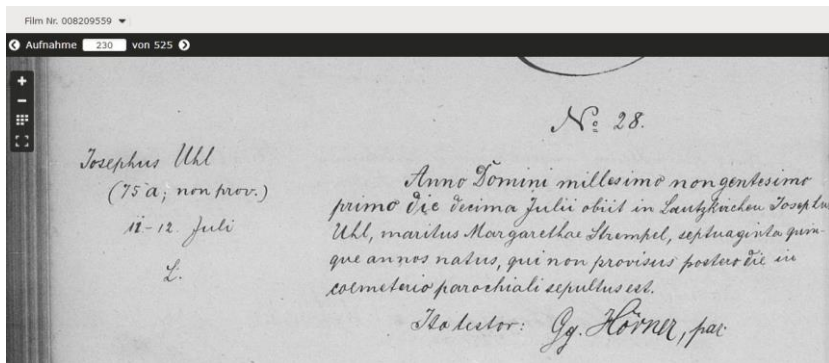 Film Nr. 008209559
Aufnahme 230 von 525
Nº 28.
Josephus Uhl
(75 a; non prov.)
11-12. Juli
L.
Anno Domini millesimo nongentesimo
primo die decima Julii obiit in Lautzkirchen Josephus
Uhl, maritus Margarethae Strempel, septuaginta quin-
que annos natus, qui non provisus postero die in
coemeterio parochiali sepultus est.
Ita testor: Gg. Hörner, par